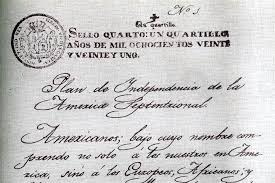 Nº 1
Un quartillo
SELLO QUARTO: UN QUARTILLO,
AÑOS DE MIL OCHOCIENTOS VEINTE
Y VEINTE Y UNO.
Plan de Independencia de la
America Septentrional.
Americanos; bajo cuyo nombre
comprendo no solo á los nuestros en Ame
rica, sino á los Europeos, Africanos, y